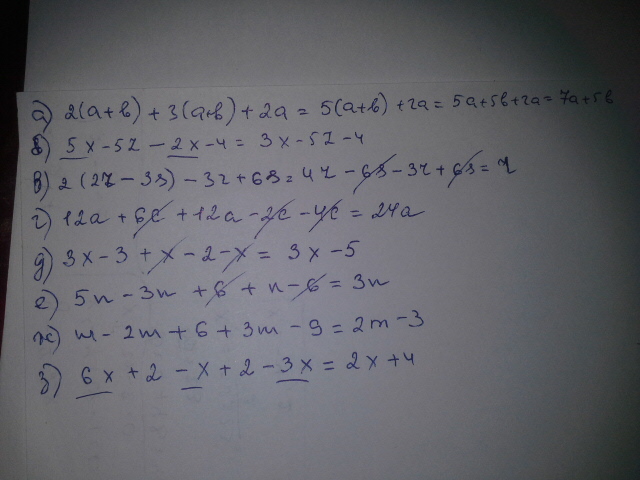 а) 2(a+b) + 3(a+b) + 2a = 5(a+b) + 2a = 5a+5b+2a = 7a+5b
б) 5x - 5z - 2x - 4 = 3x - 5z - 4
в) 2(2r - 3s) - 3r + 6s = 4r - 6s - 3r + 6s = r
г) 12a + 6c + 12a - 2c - 4c = 24a
д) 3x - 3 + x - 2 - x = 3x - 5
е) 5n - 3n + 6 + n - 6 = 3n
ж) m - 2m + 6 + 3m - 9 = 2m - 3
з) 6x + 2 - x + 2 - 3x = 2x + 4